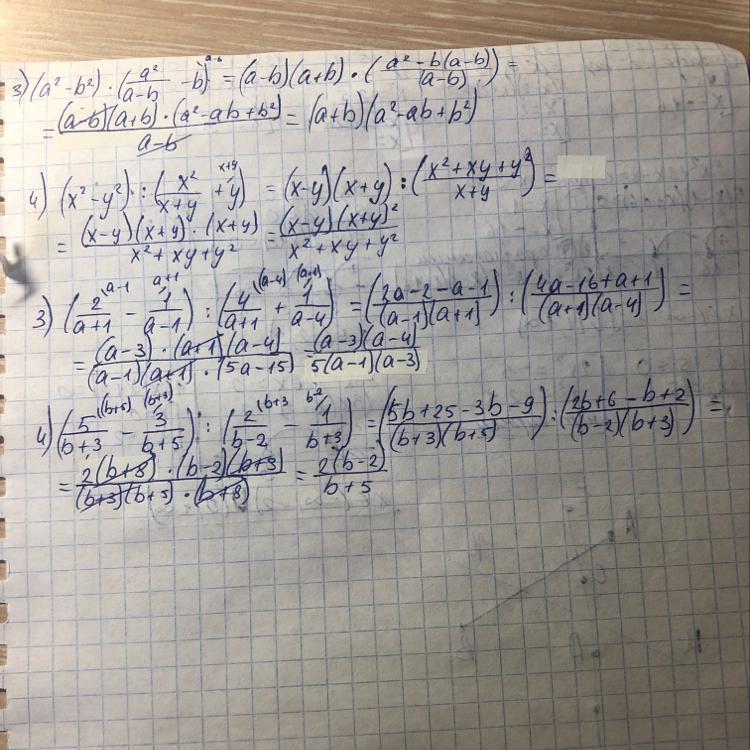 3) (a² - b²) · (a²/(a-b) - b)^(a-b) = (a-b)(a+b) · ((a² - b(a-b))/(a-b)) =
= ((a-b)(a+b) · (a² - ab + b²))/(a-b) = (a+b)(a² - ab + b²)
4) (x² - y²) : (x²/(x+y) + y)^(x+y) = (x-y)(x+y) : ((x² + xy + y²)/(x+y)) =
= ((x-y)(x+y) · (x+y))/(x² + xy + y²) = ((x-y)(x+y)²)/(x² + xy + y²)
3) (2/(a+1)^(a-1) - 1/(a-1)^(a+1)) : (4/(a+1)^(a-4) + 1/(a-4)^(a+1)) = ((2a-2-a-1)/((a-1)(a+1))) : ((4a-16+a+1)/((a+1)(a-4))) =
= ((a-3) · (a+1)(a-4))/((a-1)(a+1) · (5a-15)) = ((a-3)(a-4))/(5(a-1)(a-3))
4) (5/(b+3)^(b+5) - 3/(b+5)^(b+3)) : (2/(b-2)^(b+3) - 1/(b+3)^(b-2)) = ((5b+25-3b-9)/((b+3)(b+5))) : ((2b+6-b+2)/((b-2)(b+3))) =
= (2(b+8) · (b-2)(b+3))/((b+3)(b+5) · (b+8)) = (2(b-2))/(b+5)